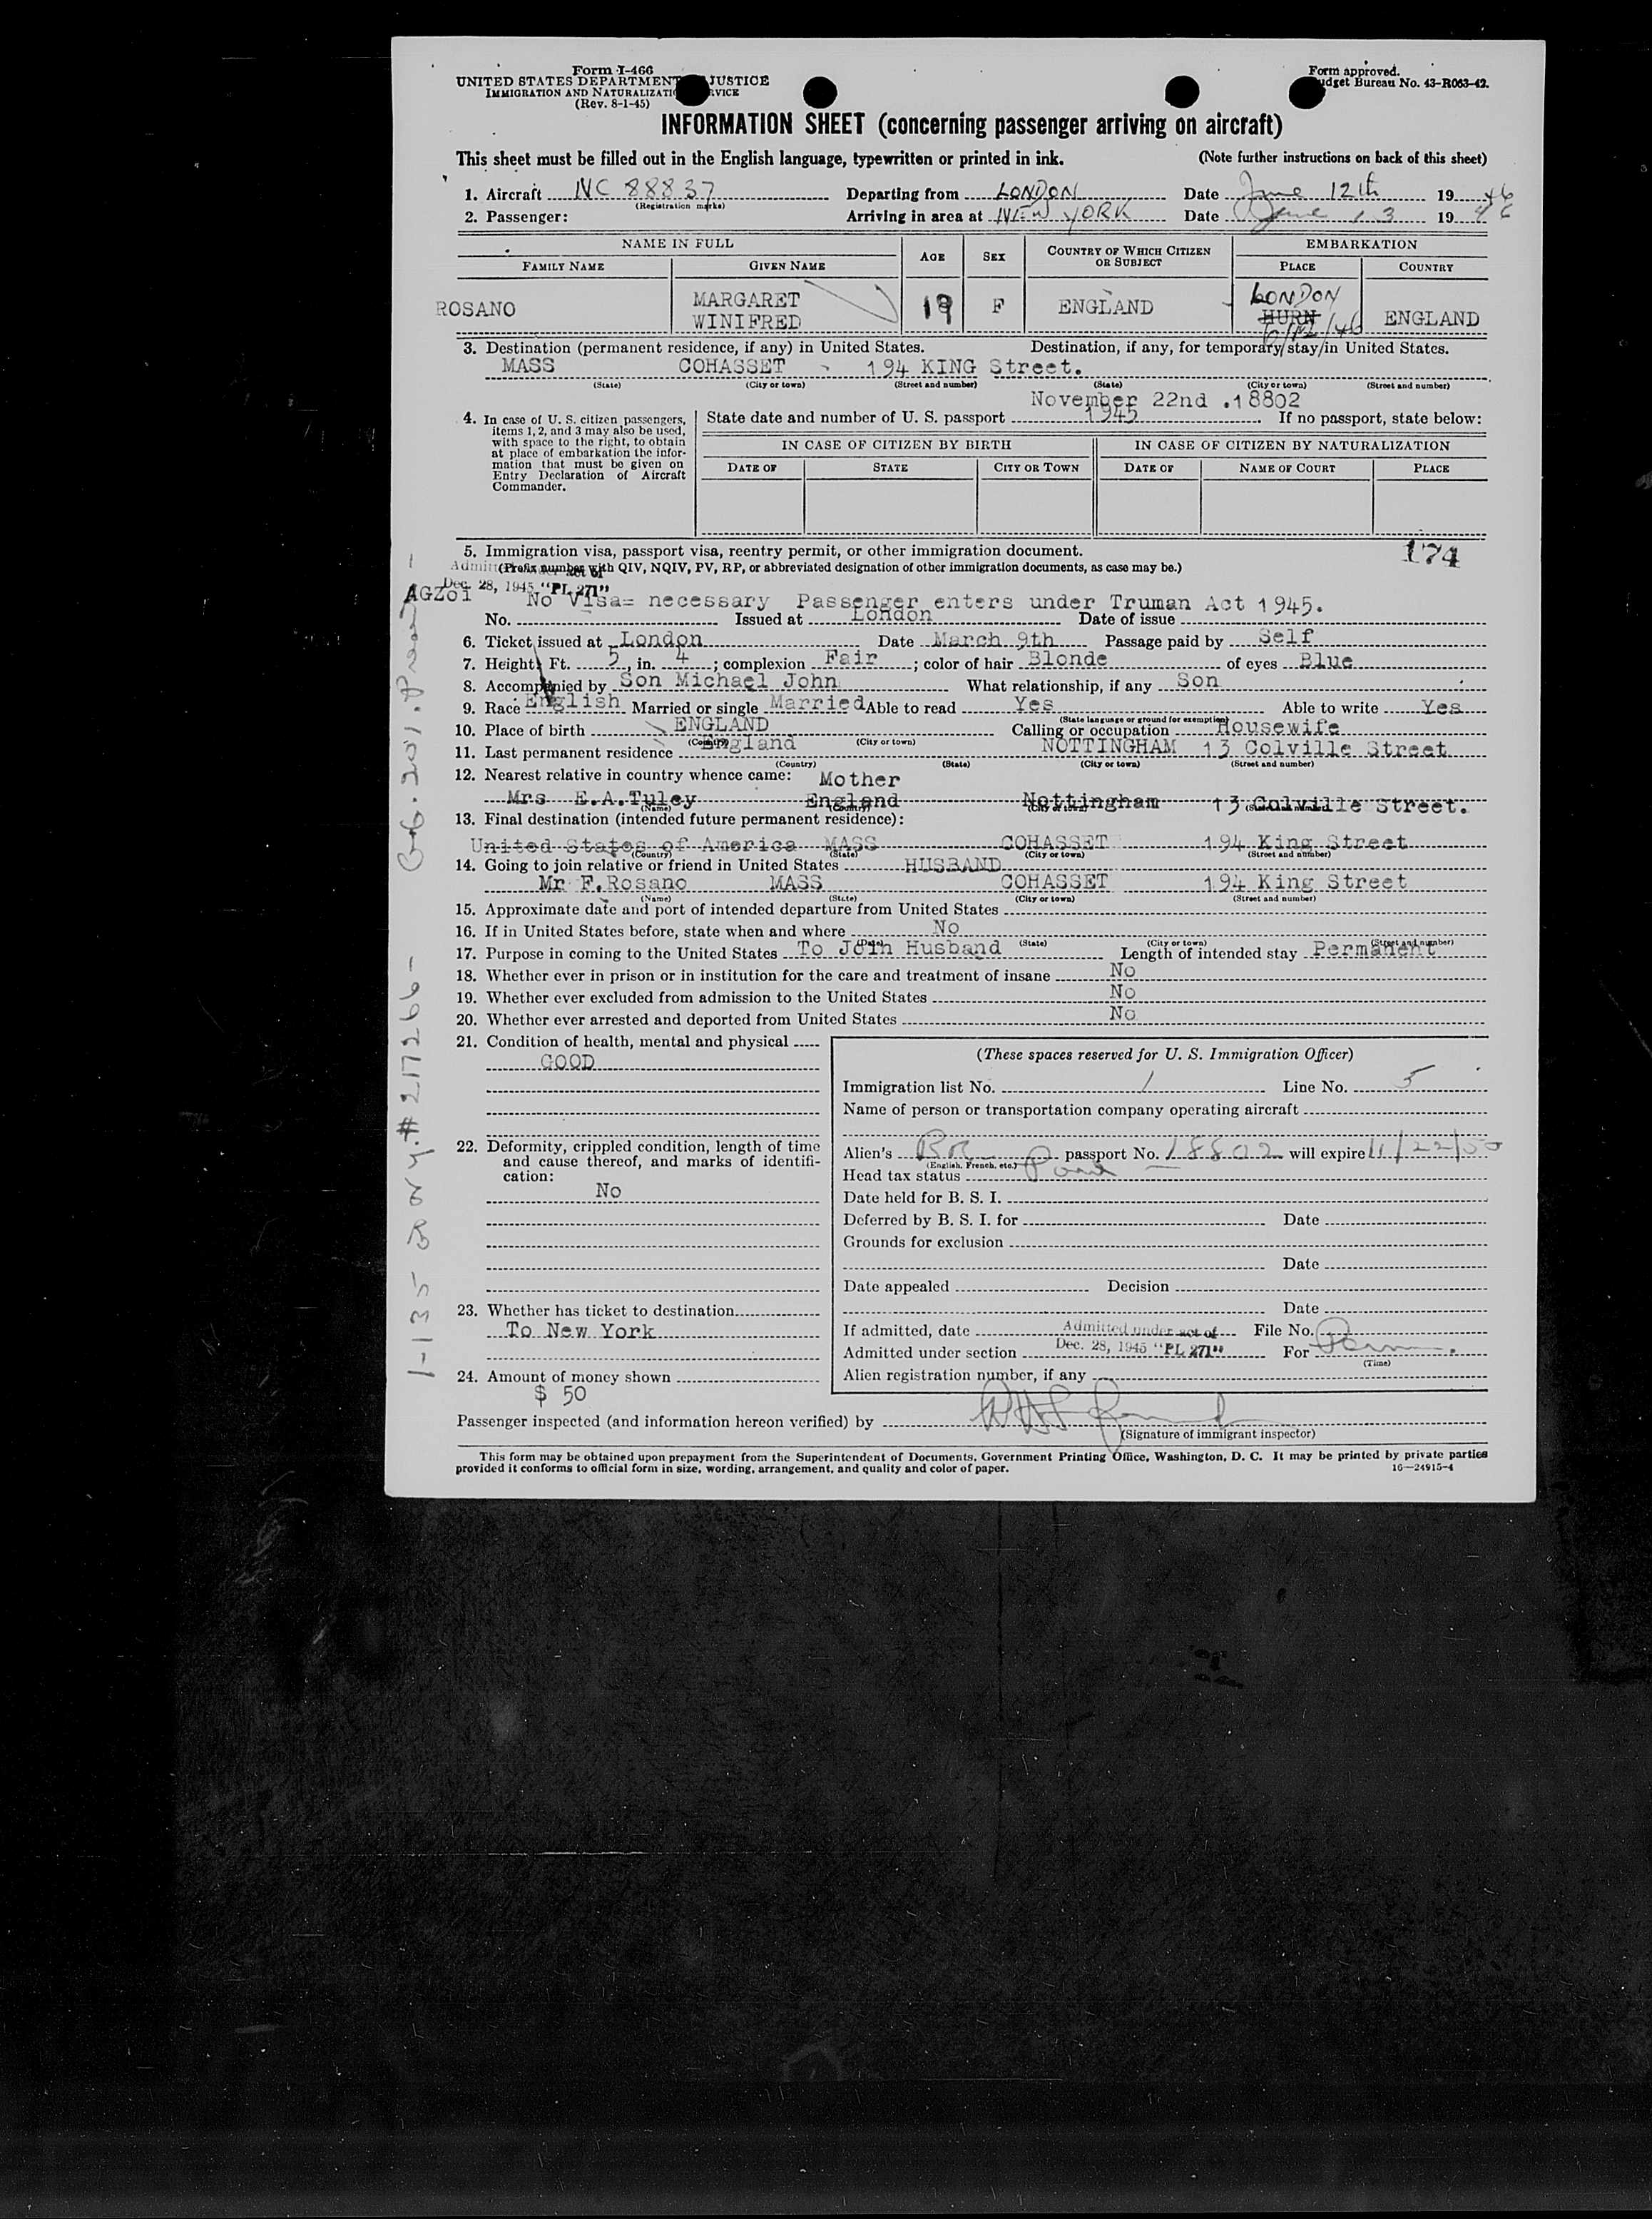 Form I-466
UNITED STATES DEPARTMENT JUSTICE
IMMIGRATION AND NATURALIZATI RVICE
(Rev. 8-1-45)
Form approved.
udget Bureau No. 43-R063-42.
INFORMATION SHEET (concerning passenger arriving on aircraft)
This sheet must be filled out in the English language, typewritten or printed in ink. (Note further instructions on back of this sheet)
1. Aircraft NC 88837 Departing from LONDON Date June 12th 19 46
(Registration marks)
2. Passenger: Arriving in area at NEW YORK Date June 13 19 46
NAME IN FULL AGE SEX COUNTRY OF WHICH CITIZEN OR SUBJECT EMBARKATION
FAMILY NAME GIVEN NAME PLACE COUNTRY
ROSANO MARGARET WINIFRED 19 F ENGLAND LONDON HURN 6/12/46 ENGLAND
3. Destination (permanent residence, if any) in United States. Destination, if any, for temporary stay in United States.
MASS COHASSET 194 KING Street.
(State) (City or town) (Street and number) (State) (City or town) (Street and number)
November 22nd .18802
4. In case of U. S. citizen passengers, items 1, 2, and 3 may also be used, with space to the right, to obtain at place of embarkation the information that must be given on Entry Declaration of Aircraft Commander.
State date and number of U. S. passport 1945 If no passport, state below:
IN CASE OF CITIZEN BY BIRTH IN CASE OF CITIZEN BY NATURALIZATION
DATE OF STATE CITY OR TOWN DATE OF NAME OF COURT PLACE
174
5. Immigration visa, passport visa, reentry permit, or other immigration document.
(Prefix number with QIV, NQIV, PV, RP, or abbreviated designation of other immigration documents, as case may be.)
Dec. 28, 1945 "PL 271"
AGZOI
No Visa= necessary Passenger enters under Truman Act 1945.
No. Issued at London Date of issue
6. Ticket issued at London Date March 9th Passage paid by Self
7. Height: Ft. 5, in. 4; complexion Fair; color of hair Blonde of eyes Blue
8. Accompanied by Son Michael John What relationship, if any Son
9. Race English Married or single Married Able to read Yes Able to write Yes
(State language or ground for exemption)
10. Place of birth ENGLAND Calling or occupation Housewife
(Country) (City or town)
11. Last permanent residence England NOTTINGHAM 13 Colville Street
(Country) (State) (City or town) (Street and number)
12. Nearest relative in country whence came: Mother
Mrs E.A.Tuley England Nottingham 13 Colville Street.
(Name) (Country) (City or town) (Street and number)
13. Final destination (intended future permanent residence):
United States of America MASS COHASSET 194 King Street
(Country) (State) (City or town) (Street and number)
14. Going to join relative or friend in United States HUSBAND
Mr F.Rosano MASS COHASSET 194 King Street
(Name) (State) (City or town) (Street and number)
15. Approximate date and port of intended departure from United States
16. If in United States before, state when and where No
(Date) (State) (City or town) (Street and number)
17. Purpose in coming to the United States To Join Husband Length of intended stay Permanent
18. Whether ever in prison or in institution for the care and treatment of insane No
19. Whether ever excluded from admission to the United States No
20. Whether ever arrested and deported from United States No
21. Condition of health, mental and physical
GOOD
22. Deformity, crippled condition, length of time and cause thereof, and marks of identification:
No
23. Whether has ticket to destination
To New York
24. Amount of money shown
$ 50
(These spaces reserved for U. S. Immigration Officer)
Immigration list No. 1 Line No. 5
Name of person or transportation company operating aircraft
Alien's Br passport No. 18802 will expire 11/22/50
(English, French, etc.)
Head tax status
Date held for B. S. I.
Deferred by B. S. I. for Date
Grounds for exclusion
Date
Date appealed Decision
Date
If admitted, date Admitted under act of File No.
Admitted under section Dec. 28, 1945 "PL 271" For Perm.
(Time)
Alien registration number, if any
Passenger inspected (and information hereon verified) by
(Signature of immigrant inspector)
This form may be obtained upon prepayment from the Superintendent of Documents, Government Printing Office, Washington, D. C. It may be printed by private parties
provided it conforms to official form in size, wording, arrangement, and quality and color of paper. 16—24915-4